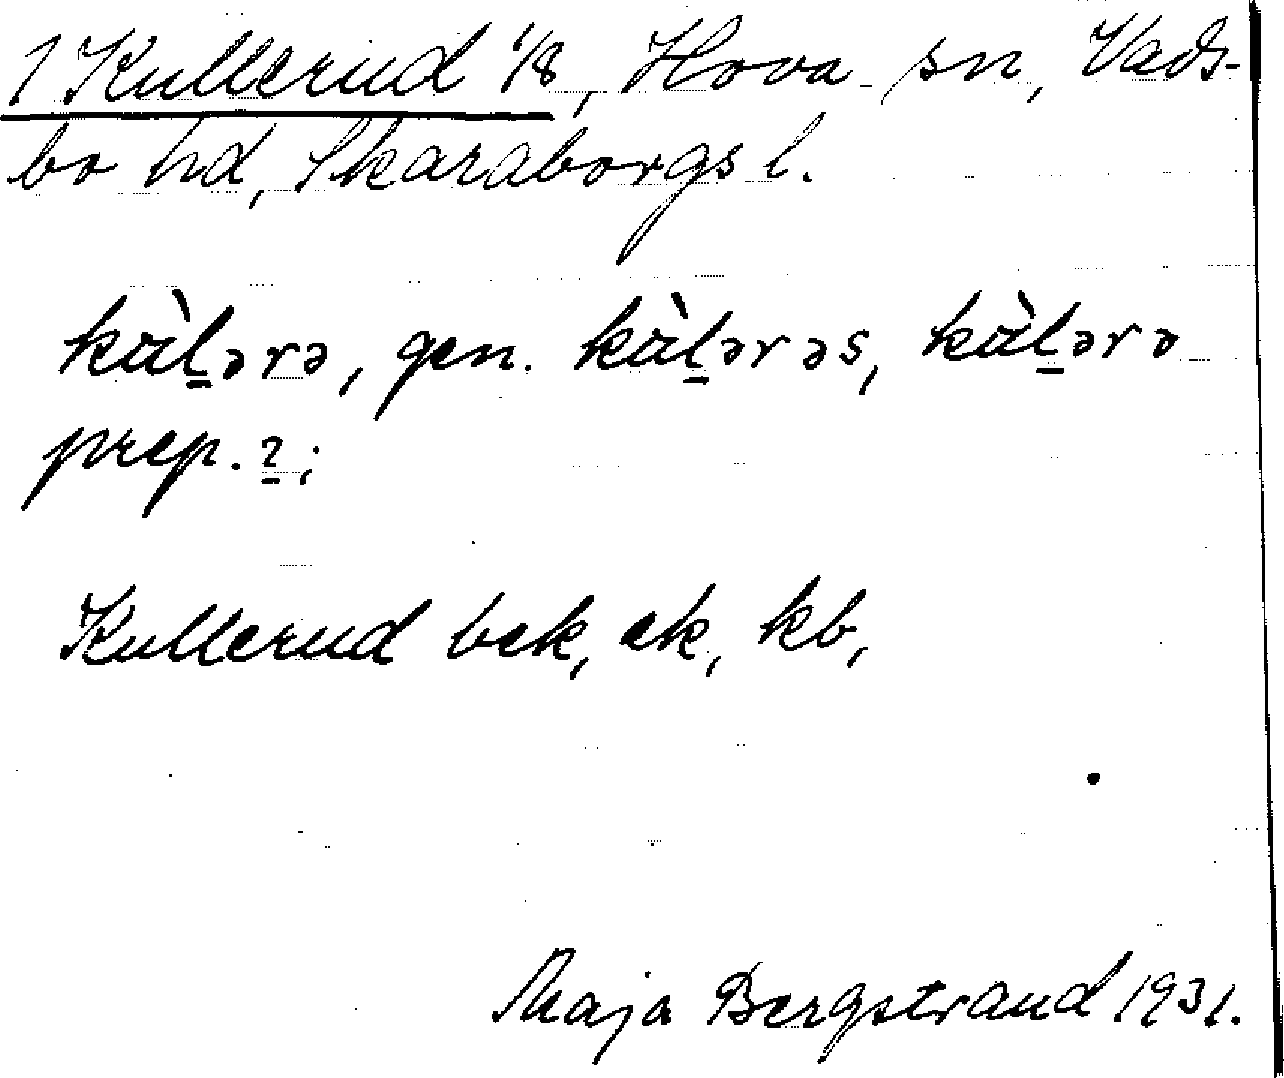 1 Kullerud 1/8, Hova sn, Vads-
bo hd, Skaraborgs l.
kɷ̀l̠ərə, gen. kɷ̀l̠ərəs, kɷ̀l̠ərə
prep. 2;
Kullerud bek, ek, kb,
Maja Bergstrand 1931.